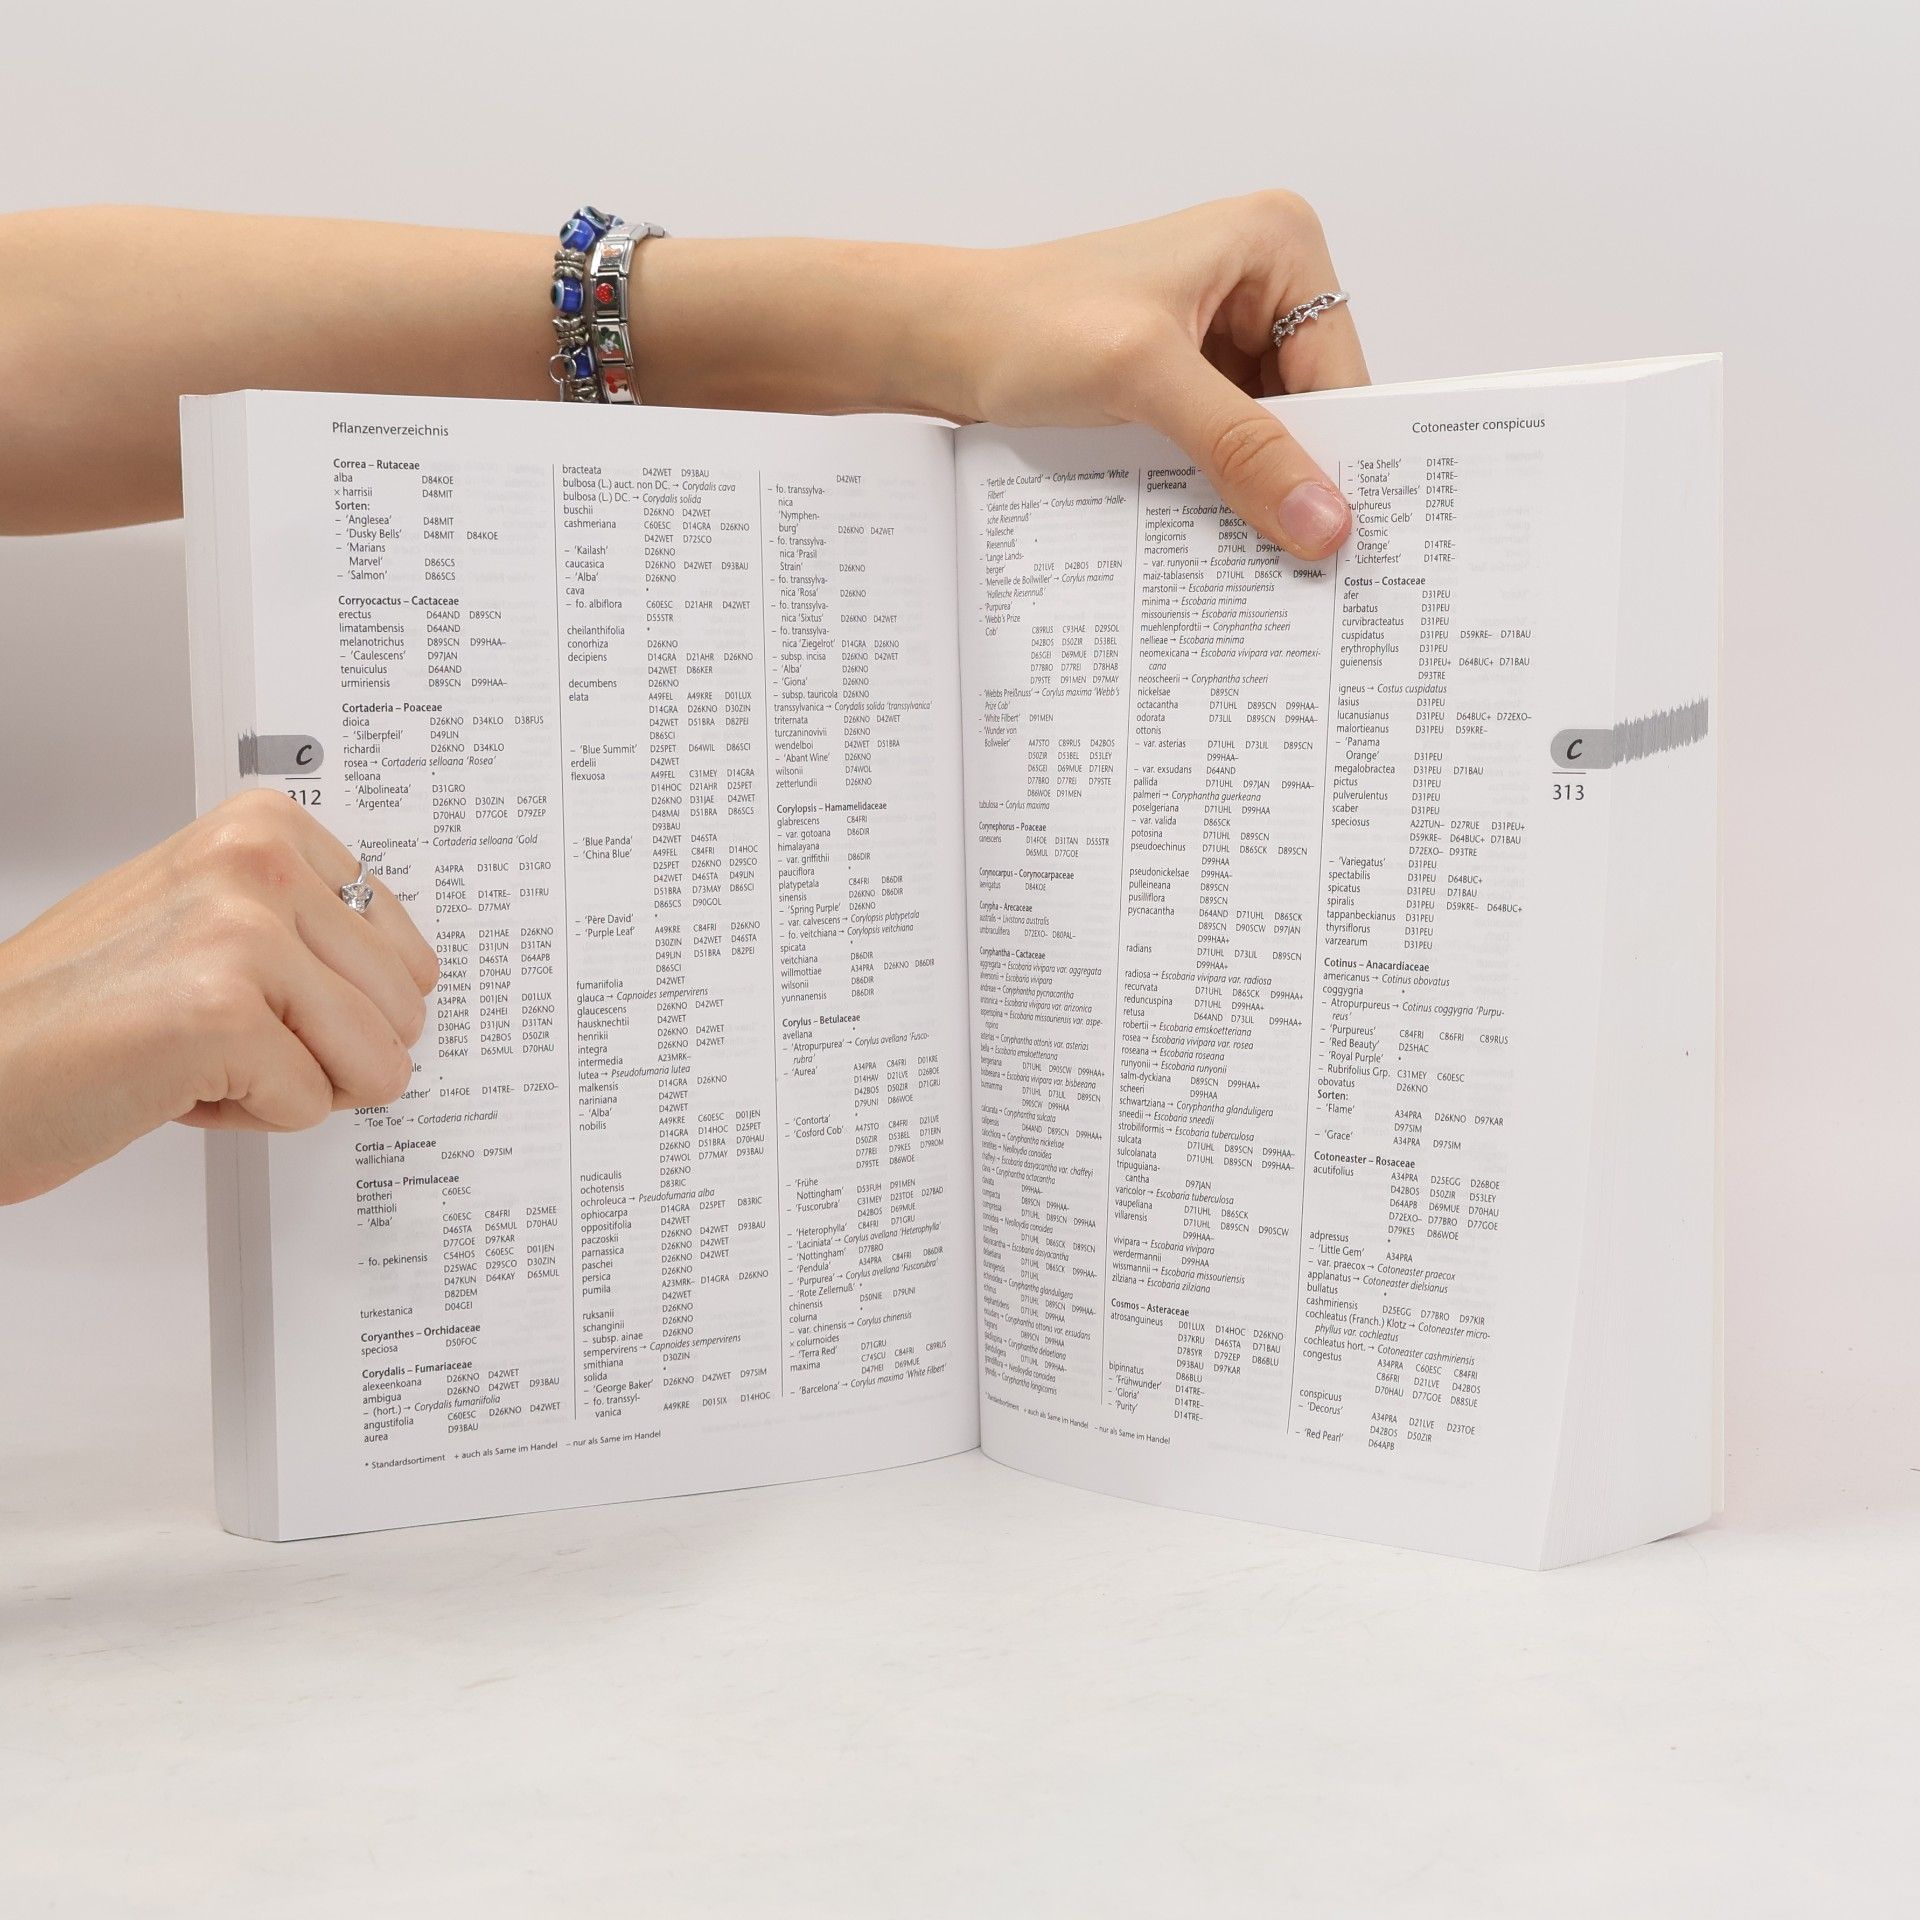 Pflanzenverzeichnis
Correa – Rutaceae
alba D84KOE
× harrisii D48MIT
Sorten:
– 'Anglesea' D48MIT
– 'Dusky Bells' D48MIT D84KOE
– 'Marians
Marvel' D86SCS
– 'Salmon' D86SCS
Corryocactus – Cactaceae
erectus D64AND D89SCN
limatambensis D64AND
melanotrichus D89SCN D99HAA–
– 'Caulescens' D97JAN
tenuiculus D64AND
urmiriensis D89SCN D99HAA–
Cortaderia – Poaceae
dioica D26KNO D34KLO D38FUS
– 'Silberpfeil' D49LIN
richardii D26KNO D34KLO
rosea → Cortaderia selloana 'Rosea'
selloana *
– 'Albolineata' D31GRO
– 'Argentea' D26KNO D30ZIN D67GER
D70HAU D77GOE D79ZEP
D97KIR
– 'Aureolineata' → Cortaderia selloana 'Gold
Band'
old Band' A34PRA D31BUC D31GRO
D64WIL
ther' D14FOE D14TRE– D31FRU
D72EXO– D77MAY
*
A34PRA D21HAE D26KNO
D31BUC D31JUN D31TAN
D34KLO D46STA D64APB
D64KAY D70HAU D77GOE
D91MEN D91NAP
A34PRA D01JEN D01LUX
D21AHR D24HEI D26KNO
D30HAG D31JUN D31TAN
D38FUS D42BOS D50ZIR
D64KAY D65MUL D70HAU
*
eather' D14FOE D14TRE– D72EXO–
Sorten:
– 'Toe Toe' → Cortaderia richardii
Cortia – Apiaceae
wallichiana D26KNO D97SIM
Cortusa – Primulaceae
brotheri C60ESC
matthioli *
– 'Alba' C60ESC C84FRI D25MEE
D46STA D65MUL D70HAU
D77GOE D97KAR
– fo. pekinensis C54HOS C60ESC D01JEN
D25WAC D29SCO D30ZIN
D47KUN D64KAY D65MUL
D82DEM
turkestanica D04GEI
Coryanthes – Orchidaceae
speciosa D50FOC
Corydalis – Fumariaceae
alexeenkoana D26KNO D42WET
ambigua D26KNO D42WET D93BAU
– (hort.) → Corydalis fumariifolia
angustifolia C60ESC D26KNO D42WET
aurea D93BAU
bracteata D42WET D93BAU
bulbosa (L.) auct. non DC. → Corydalis cava
bulbosa (L.) DC. → Corydalis solida
buschii D26KNO D42WET
cashmeriana C60ESC D14GRA D26KNO
D42WET D72SCO
– 'Kailash' D26KNO
caucasica D26KNO D42WET D93BAU
– 'Alba' D26KNO
cava *
– fo. albiflora C60ESC D21AHR D42WET
D55STR
cheilanthifolia *
conorhiza D26KNO
decipiens D14GRA D21AHR D26KNO
D42WET D86KER
decumbens D26KNO
elata A49FEL A49KRE D01LUX
D14GRA D26KNO D30ZIN
D42WET D51BRA D82PEI
D86SCI
– 'Blue Summit' D25PET D64WIL D86SCI
erdelii D42WET
flexuosa A49FEL C31MEY D14GRA
D14HOC D21AHR D25PET
D26KNO D31JAE D42WET
D48MAI D51BRA D86SCS
D93BAU
– 'Blue Panda' D42WET D46STA
– 'China Blue' A49FEL C84FRI D14HOC
D25PET D26KNO D29SCO
D42WET D46STA D49LIN
D51BRA D73MAY D86SCI
D86SCS D90GOL
– 'Père David' *
– 'Purple Leaf' A49KRE C84FRI D26KNO
D30ZIN D42WET D46STA
D49LIN D51BRA D82PEI
D86SCI
fumariifolia D42WET
glauca → Capnoides sempervirens
glaucescens D26KNO D42WET
hausknechtii D42WET
henrikii D26KNO D42WET
integra D26KNO D42WET
intermedia A23MRK–
lutea → Pseudofumaria lutea
malkensis D14GRA D26KNO
nariniana D42WET
– 'Alba' D42WET
nobilis A49KRE C60ESC D01JEN
D14GRA D14HOC D25PET
D26KNO D51BRA D70HAU
D74WOL D77MAY D93BAU
nudicaulis D26KNO
ochotensis D83RIC
ochroleuca → Pseudofumaria alba
ophiocarpa D14GRA D25PET D83RIC
oppositifolia D42WET
paczoskii D26KNO D42WET D93BAU
parnassica D26KNO D42WET
paschei D26KNO D42WET
persica D26KNO
pumila A23MRK– D14GRA D26KNO
D42WET
ruksanii D26KNO
schanginii D26KNO
– subsp. ainae D26KNO
sempervirens → Capnoides sempervirens
smithiana D30ZIN
solida *
– 'George Baker' D26KNO D42WET D97SIM
– fo. transsyl-
vanica A49KRE D01SIX D14HOC
D42WET
– fo. transsylva-
nica
'Nymphen-
burg' D26KNO D42WET
– fo. transsylva-
nica 'Prasil
Strain' D26KNO
– fo. transsylva-
nica 'Rosa' D26KNO
– fo. transsylva-
nica 'Sixtus' D26KNO D42WET
– fo. transsylva-
nica 'Ziegelrot' D14GRA D26KNO
– subsp. incisa D26KNO D42WET
– 'Alba' D26KNO
– 'Giona' D26KNO
– subsp. tauricola D26KNO
transsylvanica → Corydalis solida 'transsylvanica'
triternata D26KNO D42WET
turczaninovivii D26KNO
wendelboi D42WET D51BRA
– 'Abant Wine' D26KNO
wilsonii D74WOL
zetterlundii D26KNO
Corylopsis – Hamamelidaceae
glabrescens C84FRI
– var. gotoana D86DIR
himalayana
– var. griffithii D86DIR
pauciflora *
platypetala C84FRI D86DIR
sinensis D26KNO D86DIR
– 'Spring Purple' D26KNO
– var. calvescens → Corylopsis platypetala
– fo. veitchiana → Corylopsis veitchiana
spicata *
veitchiana D86DIR
willmottiae A34PRA D26KNO D86DIR
wilsonii D86DIR
yunnanensis D86DIR
Corylus – Betulaceae
avellana *
– 'Atropurpurea' → Corylus avellana 'Fusco-
rubra'
– 'Aurea' A34PRA C84FRI D01KRE
D14HAV D21LVE D26BOE
D42BOS D50ZIR D71GRU
D79UNI D86WOE
– 'Contorta' *
– 'Cosford Cob' A47STO C84FRI D21LVE
D50ZIR D53BEL D71ERN
D77REI D79KES D79ROM
D79STE D86WOE
– 'Frühe
Nottingham' D53FUH D91MEN
– 'Fuscorubra' C31MEY D23TOE D27BAD
D42BOS D69MUE
– 'Heterophylla' C84FRI D71GRU
– 'Laciniata' → Corylus avellana 'Heterophylla'
– 'Nottingham' D77BRO
– 'Pendula' A34PRA C84FRI D86DIR
– 'Purpurea' → Corylus avellana 'Fuscorubra'
– 'Rote Zellernuß' *
chinensis D50NIE D79UNI
colurna *
– var. chinensis → Corylus chinensis
× colurnoides
– 'Terra Red' D71GRU
maxima C74SCU C84FRI C89RUS
D47HEI D69MUE
– 'Barcelona' → Corylus maxima 'White Filbert'
* Standardsortiment + auch als Same im Handel – nur als Same im Handel
C
312
Cotoneaster conspicuus
– 'Fertile de Coutard' → Corylus maxima 'White
Filbert'
– 'Géante des Halles' → Corylus maxima 'Halle-
sche Riesennuß'
– 'Hallesche
Riesennuß' *
– 'Lange Lands-
berger' D21LVE D42BOS D71ERN
– 'Merveille de Bollwiller' → Corylus maxima
'Hallesche Riesennuß'
– 'Purpurea' *
– 'Webb's Prize
Cob' C89RUS C93HAE D29SOL
D42BOS D50ZIR D53BEL
D65GEI D69MUE D71ERN
D77BRO D77REI D78HAB
D79STE D91MEN D97MAY
– 'Webbs Preißnuss' → Corylus maxima 'Webb's
Prize Cob'
– 'White Filbert' D91MEN
– 'Wunder von
Bollweiler' A47STO C89RUS D42BOS
D50ZIR D53BEL D53LEY
D65GEI D69MUE D71ERN
D77BRO D77REI D79STE
D86WOE D91MEN
tubulosa → Corylus maxima
Corynephorus – Poaceae
canescens D14FOE D31TAN D55STR
D65MUL D77GOE
Corynocarpus – Corynocarpaceae
laevigatus D84KOE
Corypha – Arecaceae
australis → Livistona australis
umbraculifera D72EXO– D80PAL–
Coryphantha – Cactaceae
aggregata → Escobaria vivipara var. aggregata
andreae → Coryphantha pycnacantha
arizonica → Escobaria vivipara var. arizonica
asperispina → Escobaria missouriensis var. aspe-
rispina
asterias → Coryphantha ottonis var. asterias
bella → Escobaria emskoetteriana
bergeriana D71UHL D90SCW D99HAA+
bisbeeana → Escobaria vivipara var. bisbeeana
bumamma D71UHL D73LIL D89SCN
D90SCW D99HAA
calcarata → Coryphantha sulcata
calipensis D64AND D89SCN D99HAA+
calochlora → Coryphantha nickelsae
chaffeyi → Escobaria dasyacantha var. chaffeyi
clava → Coryphantha octacantha
clavata D99HAA–
compacta D89SCN D99HAA–
compressa D71UHL D89SCN D99HAA
conoidea → Neolloydia conoidea
cornifera D71UHL D86SCK D89SCN
dasyacantha → Escobaria dasyacantha
delaetiana D71UHL D86SCK D99HAA–
durangensis D71UHL
echinoidea → Coryphantha glanduligera
echinus D71UHL D89SCN D99HAA–
elephantidens D71UHL D89SCN D99HAA–
exsudans → Coryphantha ottonis var. exsudans
fragrans D89SCN
gladiispina → Coryphantha delaetiana
glanduligera D71UHL D99HAA–
grandiflora → Neolloydia conoidea
grandis → Coryphantha longicornis
* Standardsortiment + auch als Same im Handel – nur als Same im Handel
greenwoodii –
guerkeana
hesteri → Escobaria hes
implexicoma D86SCK
longicornis D89SCN
macromeris D71UHL D99HAA
– var. runyonii → Escobaria runyonii
maiz-tablasensis D71UHL D86SCK D99HAA–
marstonii → Escobaria missouriensis
minima → Escobaria minima
missouriensis → Escobaria missouriensis
muehlenpfordtii → Coryphantha scheeri
nellieae → Escobaria minima
neomexicana → Escobaria vivipara var. neomexi-
cana
neoscheerii → Coryphantha scheeri
nickelsae D89SCN
octacantha D71UHL D89SCN D99HAA–
odorata D73LIL D89SCN D99HAA–
ottonis
– var. asterias D71UHL D73LIL D89SCN
D99HAA–
– var. exsudans D64AND
pallida D71UHL D97JAN D99HAA–
palmeri → Coryphantha guerkeana
poselgeriana D71UHL D99HAA
– var. valida D86SCK
potosina D71UHL D89SCN
pseudoechinus D71UHL D86SCK D89SCN
D99HAA
pseudonickelsae D99HAA–
pulleineana D89SCN
pusilliflora D89SCN
pycnacantha D64AND D71UHL D86SCK
D89SCN D90SCW D97JAN
D99HAA+
radians D71UHL D73LIL D89SCN
D99HAA+
radiosa → Escobaria vivipara var. radiosa
recurvata D71UHL D86SCK D99HAA+
reduncuspina D71UHL D99HAA+
retusa D64AND D73LIL D99HAA+
robertii → Escobaria emskoetteriana
rosea → Escobaria vivipara var. rosea
roseana → Escobaria roseana
runyonii → Escobaria runyonii
salm-dyckiana D89SCN D99HAA+
scheeri D99HAA
schwartziana → Coryphantha glanduligera
sneedii → Escobaria sneedii
strobiliformis → Escobaria tuberculosa
sulcata D71UHL D89SCN D99HAA–
sulcolanata D71UHL D89SCN D99HAA–
tripuguiana-
cantha D97JAN
varicolor → Escobaria tuberculosa
vaupeliana D71UHL D86SCK
viliarensis D71UHL D89SCN D90SCW
D99HAA–
vivipara → Escobaria vivipara
werdermannii D99HAA
wissmannii → Escobaria missouriensis
zilziana → Escobaria zilziana
Cosmos – Asteraceae
atrosanguineus D01LUX D14HOC D26KNO
D37KRU D46STA D71BAU
D78SYR D79ZEP D86BLU
D93BAU D97KAR
bipinnatus D86BLU
– 'Frühwunder' D14TRE–
– 'Gloria' D14TRE–
– 'Purity' D14TRE–
– 'Sea Shells' D14TRE–
– 'Sonata' D14TRE–
– 'Tetra Versailles' D14TRE–
sulphureus D27RUE
'Cosmic Gelb' D14TRE–
'Cosmic
Orange' D14TRE–
– 'Lichterfest' D14TRE–
Costus – Costaceae
afer D31PEU
barbatus D31PEU
curvibracteatus D31PEU
cuspidatus D31PEU D59KRE– D71BAU
erythrophyllus D31PEU
guienensis D31PEU+ D64BUC+ D71BAU
D93TRE
igneus → Costus cuspidatus
lasius D31PEU
lucanusianus D31PEU D64BUC+ D72EXO–
malortieanus D31PEU D59KRE–
– 'Panama
Orange' D31PEU
megalobractea D31PEU D71BAU
pictus D31PEU
pulverulentus D31PEU
scaber D31PEU
speciosus A22TUN– D27RUE D31PEU+
D59KRE– D64BUC+ D71BAU
D72EXO– D93TRE
– 'Variegatus' D31PEU
spectabilis D31PEU D64BUC+
spicatus D31PEU D71BAU
spiralis D31PEU D59KRE– D64BUC+
tappanbeckianus D31PEU
thyrsiflorus D31PEU
varzearum D31PEU
Cotinus – Anacardiaceae
americanus → Cotinus obovatus
coggygria *
– Atropurpureus → Cotinus coggygria 'Purpu-
reus'
– 'Purpureus' C84FRI C86FRI C89RUS
– 'Red Beauty' D25HAC
– 'Royal Purple' *
– Rubrifolius Grp. C31MEY C60ESC
obovatus D26KNO
Sorten:
– 'Flame' A34PRA D26KNO D97KAR
D97SIM
– 'Grace' A34PRA D97SIM
Cotoneaster – Rosaceae
acutifolius A34PRA D25EGG D26BOE
D42BOS D50ZIR D53LEY
D64APB D69MUE D70HAU
D72EXO– D77BRO D77GOE
D79KES D86WOE
adpressus *
– 'Little Gem' A34PRA
– var. praecox → Cotoneaster praecox
applanatus → Cotoneaster dielsianus
bullatus *
cashmiriensis D25EGG D77BRO D97KIR
cochleatus (Franch.) Klotz → Cotoneaster micro-
phyllus var. cochleatus
cochleatus hort. → Cotoneaster cashmiriensis
congestus A34PRA C60ESC C84FRI
C86FRI D21LVE D42BOS
D70HAU D77GOE D88SUE
conspicuus
– 'Decorus' A34PRA D21LVE D23TOE
D42BOS D50ZIR
– 'Red Pearl' D64APB
C
313